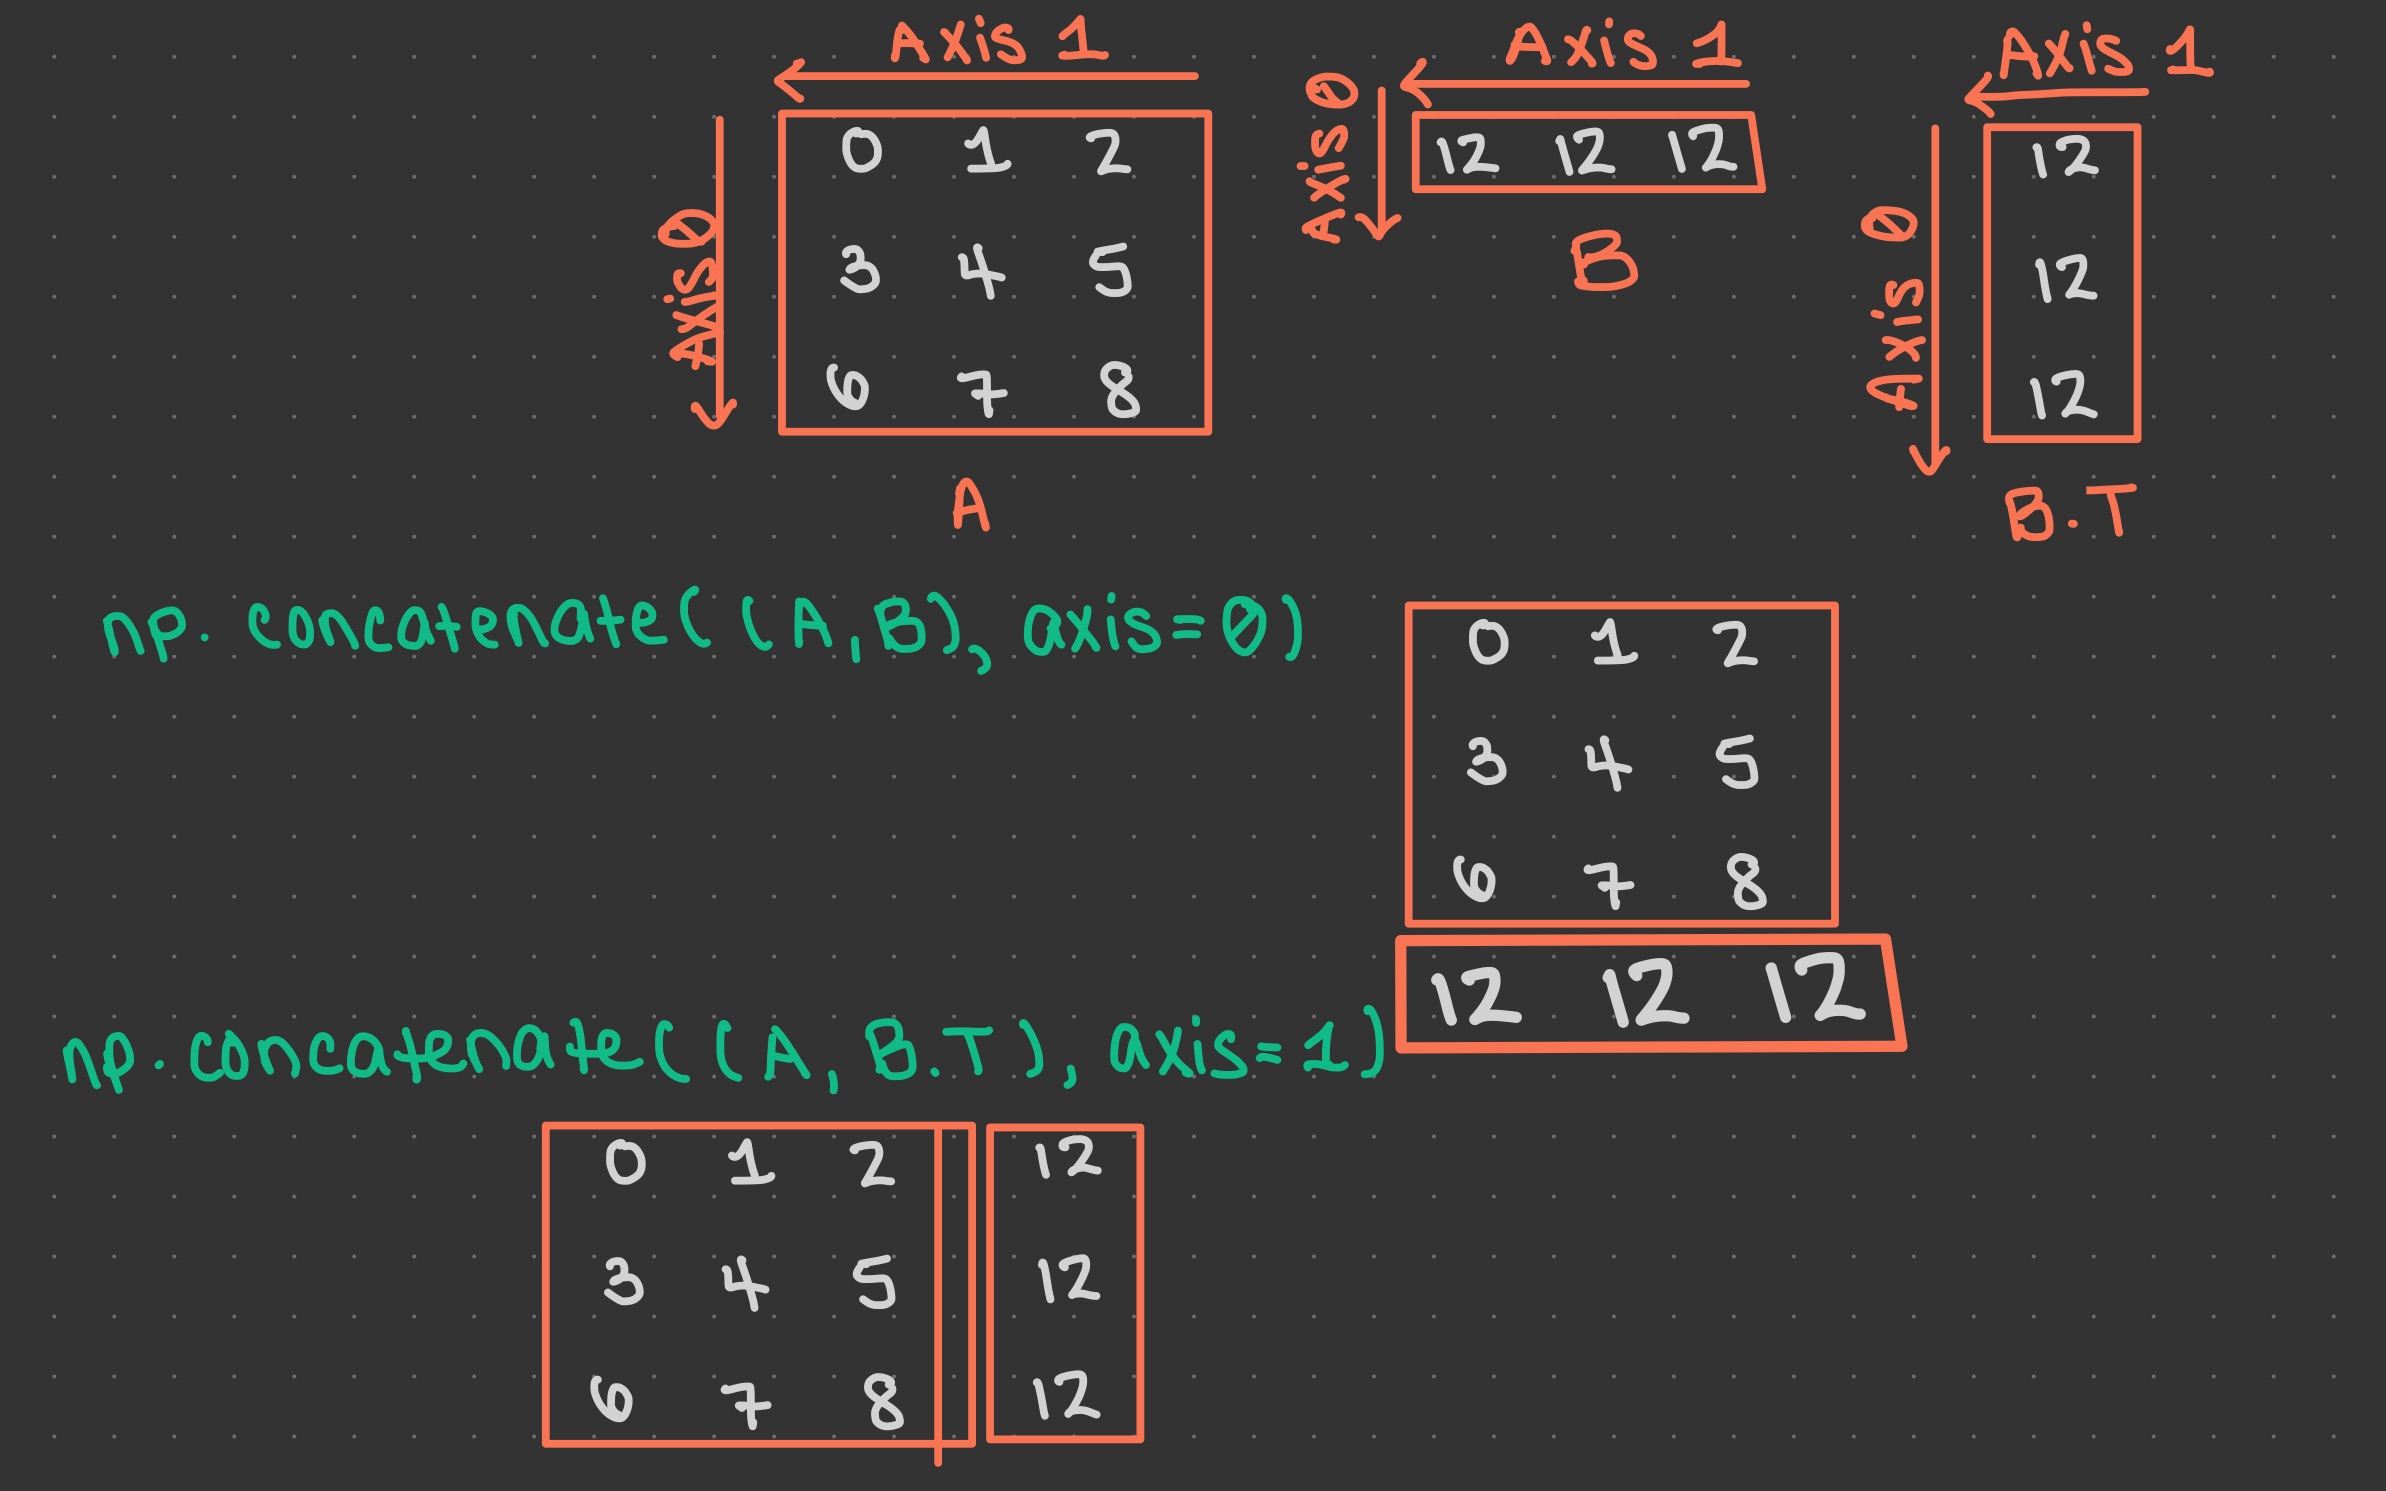 Axis 1
Axis 0
0 1 2
3 4 5
6 7 8
A
Axis 1
Axis 0
12 12 12
B
Axis 1
Axis 0
12
12
12
B.T
np.concatenate((A,B), axis=0)
0 1 2
3 4 5
6 7 8
12 12 12
np.concatenate((A,B.T), axis=1)
0 1 2 12
3 4 5 12
6 7 8 12